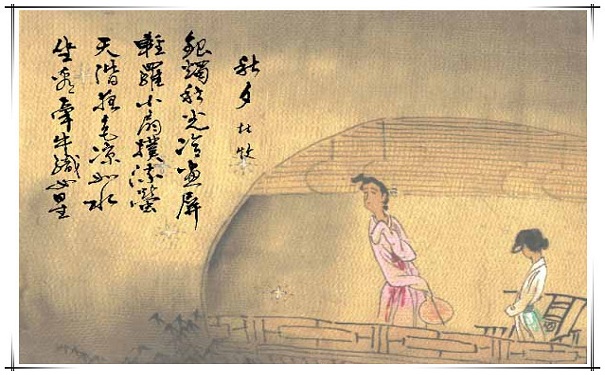 秋夕 杜牧
銀燭秋光冷畫屏
輕羅小扇撲流螢
天階夜色凉如水
坐看牽牛織女星